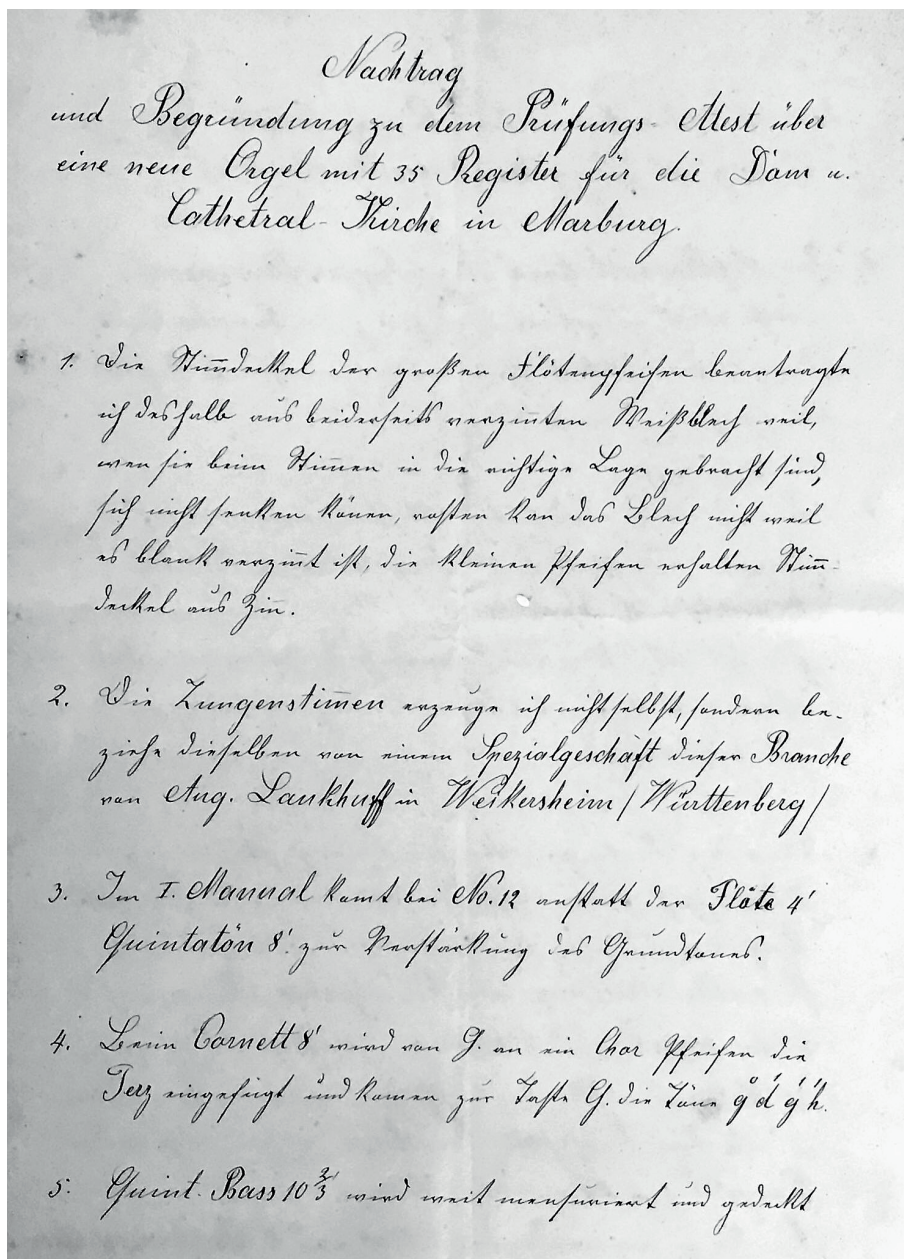 Nachtrag
und Begründung zu dem Prüfungs-Atest über
eine neue Orgel mit 35 Register für die Dom u.
Cathetral-Kirche in Marburg.
1. Die Stim̅deckel der großen Flötenpfeifen beantragte
ich deshalb aus beiderseits verzin̅ten Weißblech weil,
wen sie beim Stim̅en in die richtige Lage gebracht sind,
sich nicht senken kön̅en, rosten kan das Blech nicht weil
es blank verzin̅t ist, die kleinen Pfeifen erhalten Stim̅-
deckel aus Zin̅.
2. Die Zungenstim̅en erzeuge ich nicht selbst, sondern be-
ziehe dieselben von einem Spezialgeschäft dieser Branche
von Aug. Laukhuff in Weikersheim /Württenberg/
3. Im I. Manual kom̅t bei No. 12 anstatt der Flöte 4'
Quintatön 8'. zur Verstärkung des Grundtones.
4. Beim Cornett 8' wird von G. an ein Chor Pfeifen die
Terz eingefügt und kom̅en zur Taste G. die Töne g° d' g' h'.
5. Quint. Bass 10 2/3' wird weit mensuriert und gedeckt